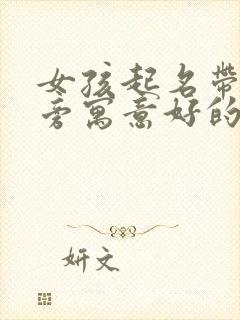 女孩起名带
旁寓意好的
妍文